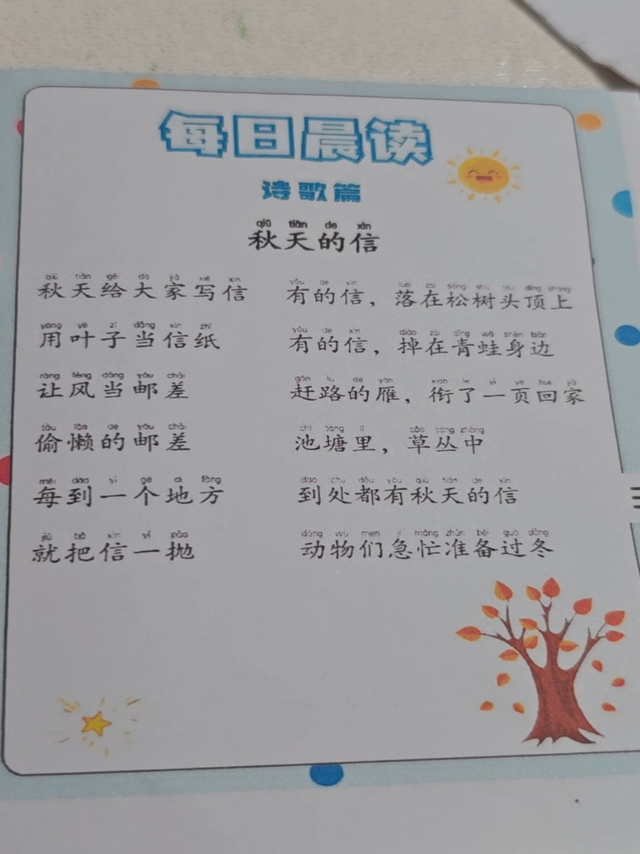 每日晨读
诗歌篇
qiū tiān de xìn
秋天的信
qiū tiān gěi dà jiā xiě xìn
秋天给大家写信
yòng yè zi dāng xìn zhǐ
用叶子当信纸
ràng fēng dāng yóu chāi
让风当邮差
tōu lǎn de yóu chāi
偷懒的邮差
měi dào yī gè dì fāng
每到一个地方
jiù bǎ xìn yī pāo
就把信一抛
yǒu de xìn luò zài sōng shù tóu dǐng shàng
有的信，落在松树头顶上
yǒu de xìn diào zài qīng wā shēn biān
有的信，掉在青蛙身边
gǎn lù de yàn xián le yī yè huí jiā
赶路的雁，衔了一页回家
chí táng lǐ cǎo cóng zhōng
池塘里，草丛中
dào chù dōu yǒu qiū tiān de xìn
到处都有秋天的信
dòng wù men jí máng zhǔn bèi guò dōng
动物们急忙准备过冬